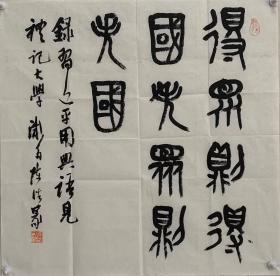 得眾則得
國失眾則
失國
錄習近平用典語見
禮記大學